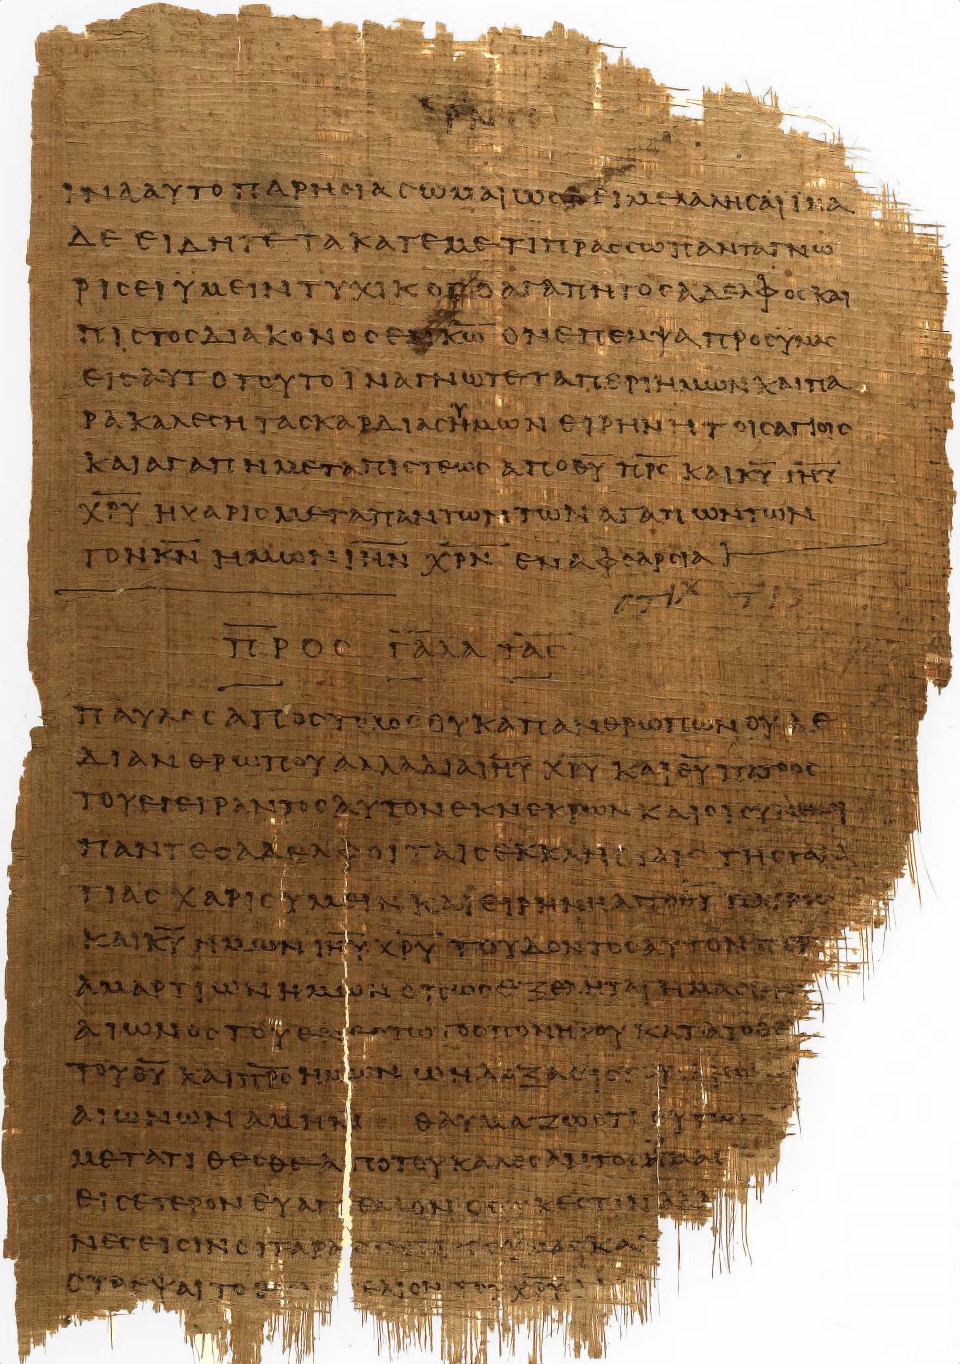 ΡΝΗ
ΙΝΑΑΥΤΟΠΑΡΗϹΙΑϹΩΜΑΙΩϹ ΕΙΜΕΛΑΛΗϹΑΙΙΝΑ
ΔΕΕΙΔΗΤΕΤΑΚΑΤΕΜΕΤΙΠΡΑϹϹΩΠΑΝΤΑΓΝΩ
ΡΙϹΕΙΫΜΕΙΝΤΥΧΙΚΟϹΟΑΓΑΠΗΤΟϹΑΔΕΛΦΟϹΚΑΙ
ΠΙϹΤΟϹΔΙΑΚΟΝΟϹΕΝΚ̅Ω̅ΟΝΕΠΕΜΨΑΠΡΟϹΫΜΑϹ
ΕΙϹΑΥΤΟΤΟΥΤΟΙΝΑΓΝΩΤΕΤΑΠΕΡΙΗΜΩΝΚΑΙΠΑ
ΡΑΚΑΛΕϹΗΤΑϹΚΑΡΔΙΑϹΗΥΜΩΝΕΙΡΗΝΗΤΟΙϹΑΓΙΟΙϹ
ΚΑΙΑΓΑΠΗΜΕΤΑΠΙϹΤΕΩϹΑΠΟΘ̅Υ̅Π̅Ρ̅Ϲ̅ΚΑΙΚ̅Υ̅Ι̅Η̅Υ̅
Χ̅Ρ̅Υ̅ΗΧΑΡΙϹΜΕΤΑΠΑΝΤΩΝΤΩΝΑΓΑΠΩΝΤΩΝ
ΤΟΝΚ̅Ν̅ΗΜΩΝΙ̅Η̅Ν̅Χ̅Ρ̅Ν̅ΕΝΑΦΘΑΡϹΙΑ
ϹΤΙΧ ΤΙϚ
ΠΡΟϹ ΓΑΛΑΤΑϹ
ΠΑΥΛΟϹΑΠΟϹΤΟΛΟϹΟΥΚΑΠΑΝΘΡΩΠΩΝΟΥΔΕ
ΔΙΑΝΘΡΩΠΟΥΑΛΛΑΔΙΑΙ̅Η̅Υ̅Χ̅Ρ̅Υ̅ΚΑΙΘ̅Υ̅ΠΑΤΡΟϹ
ΤΟΥΕΓΕΙΡΑΝΤΟϹΑΥΤΟΝΕΚΝΕΚΡΩΝΚΑΙΟΙϹΥΝΕΜΟΙ
ΠΑΝΤΕϹΑΔΕΛΦΟΙΤΑΙϹΕΚΚΛΗϹΙΑΙϹΤΗϹΓΑΛΑ
ΤΙΑϹΧΑΡΙϹΥΜΕΙΝΚΑΙΕΙΡΗΝΗΑΠΟΘ̅Υ̅ΠΑΤΡΟϹ
ΚΑΙΚ̅Υ̅ΗΜΩΝΙ̅Η̅Υ̅Χ̅Ρ̅Υ̅ΤΟΥΔΟΝΤΟϹΑΥΤΟΝΠΕΡΙ
ΑΜΑΡΤΙΩΝΗΜΩΝΟΠΩϹΕΞΕΛΗΤΑΙΗΜΑϹ
ΑΙΩΝΟϹΤΟΥΕΝΕϹΤΩΤΟϹΠΟΝΗΡΟΥΚΑΤΑΤΟΘΕ
ΤΟΥΘ̅Υ̅ΚΑΙΠ̅Ρ̅Ο̅ΗΜΩΝΩΗΔΟΞΑΕΙϹΤΟΥϹΑΙΩ
ΑΙΩΝΩΝΑΜΗΝ ΘΑΥΜΑΖΩΟΤΙΟΥΤΩϹ
ΜΕΤΑΤΙΘΕϹΘΕΑΠΟΤΟΥΚΑΛΕϹΑΝΤΟϹΥΜΑϹ
ΕΙϹΕΤΕΡΟΝΕΥΑΓΓΕΛΙΟΝΟΟΥΚΕϹΤΙΝΑΛΛ
ΝΕϹΕΙϹΙΝΟΙΤΑΡΑϹϹΟΝΤΕϹΥΜΑϹΚΑΙ
ϹΤΡΕΨΑΙΤΟΕΥΑΓΓΕΛΙΟΝΤΟΥΧ̅Ρ̅Υ̅